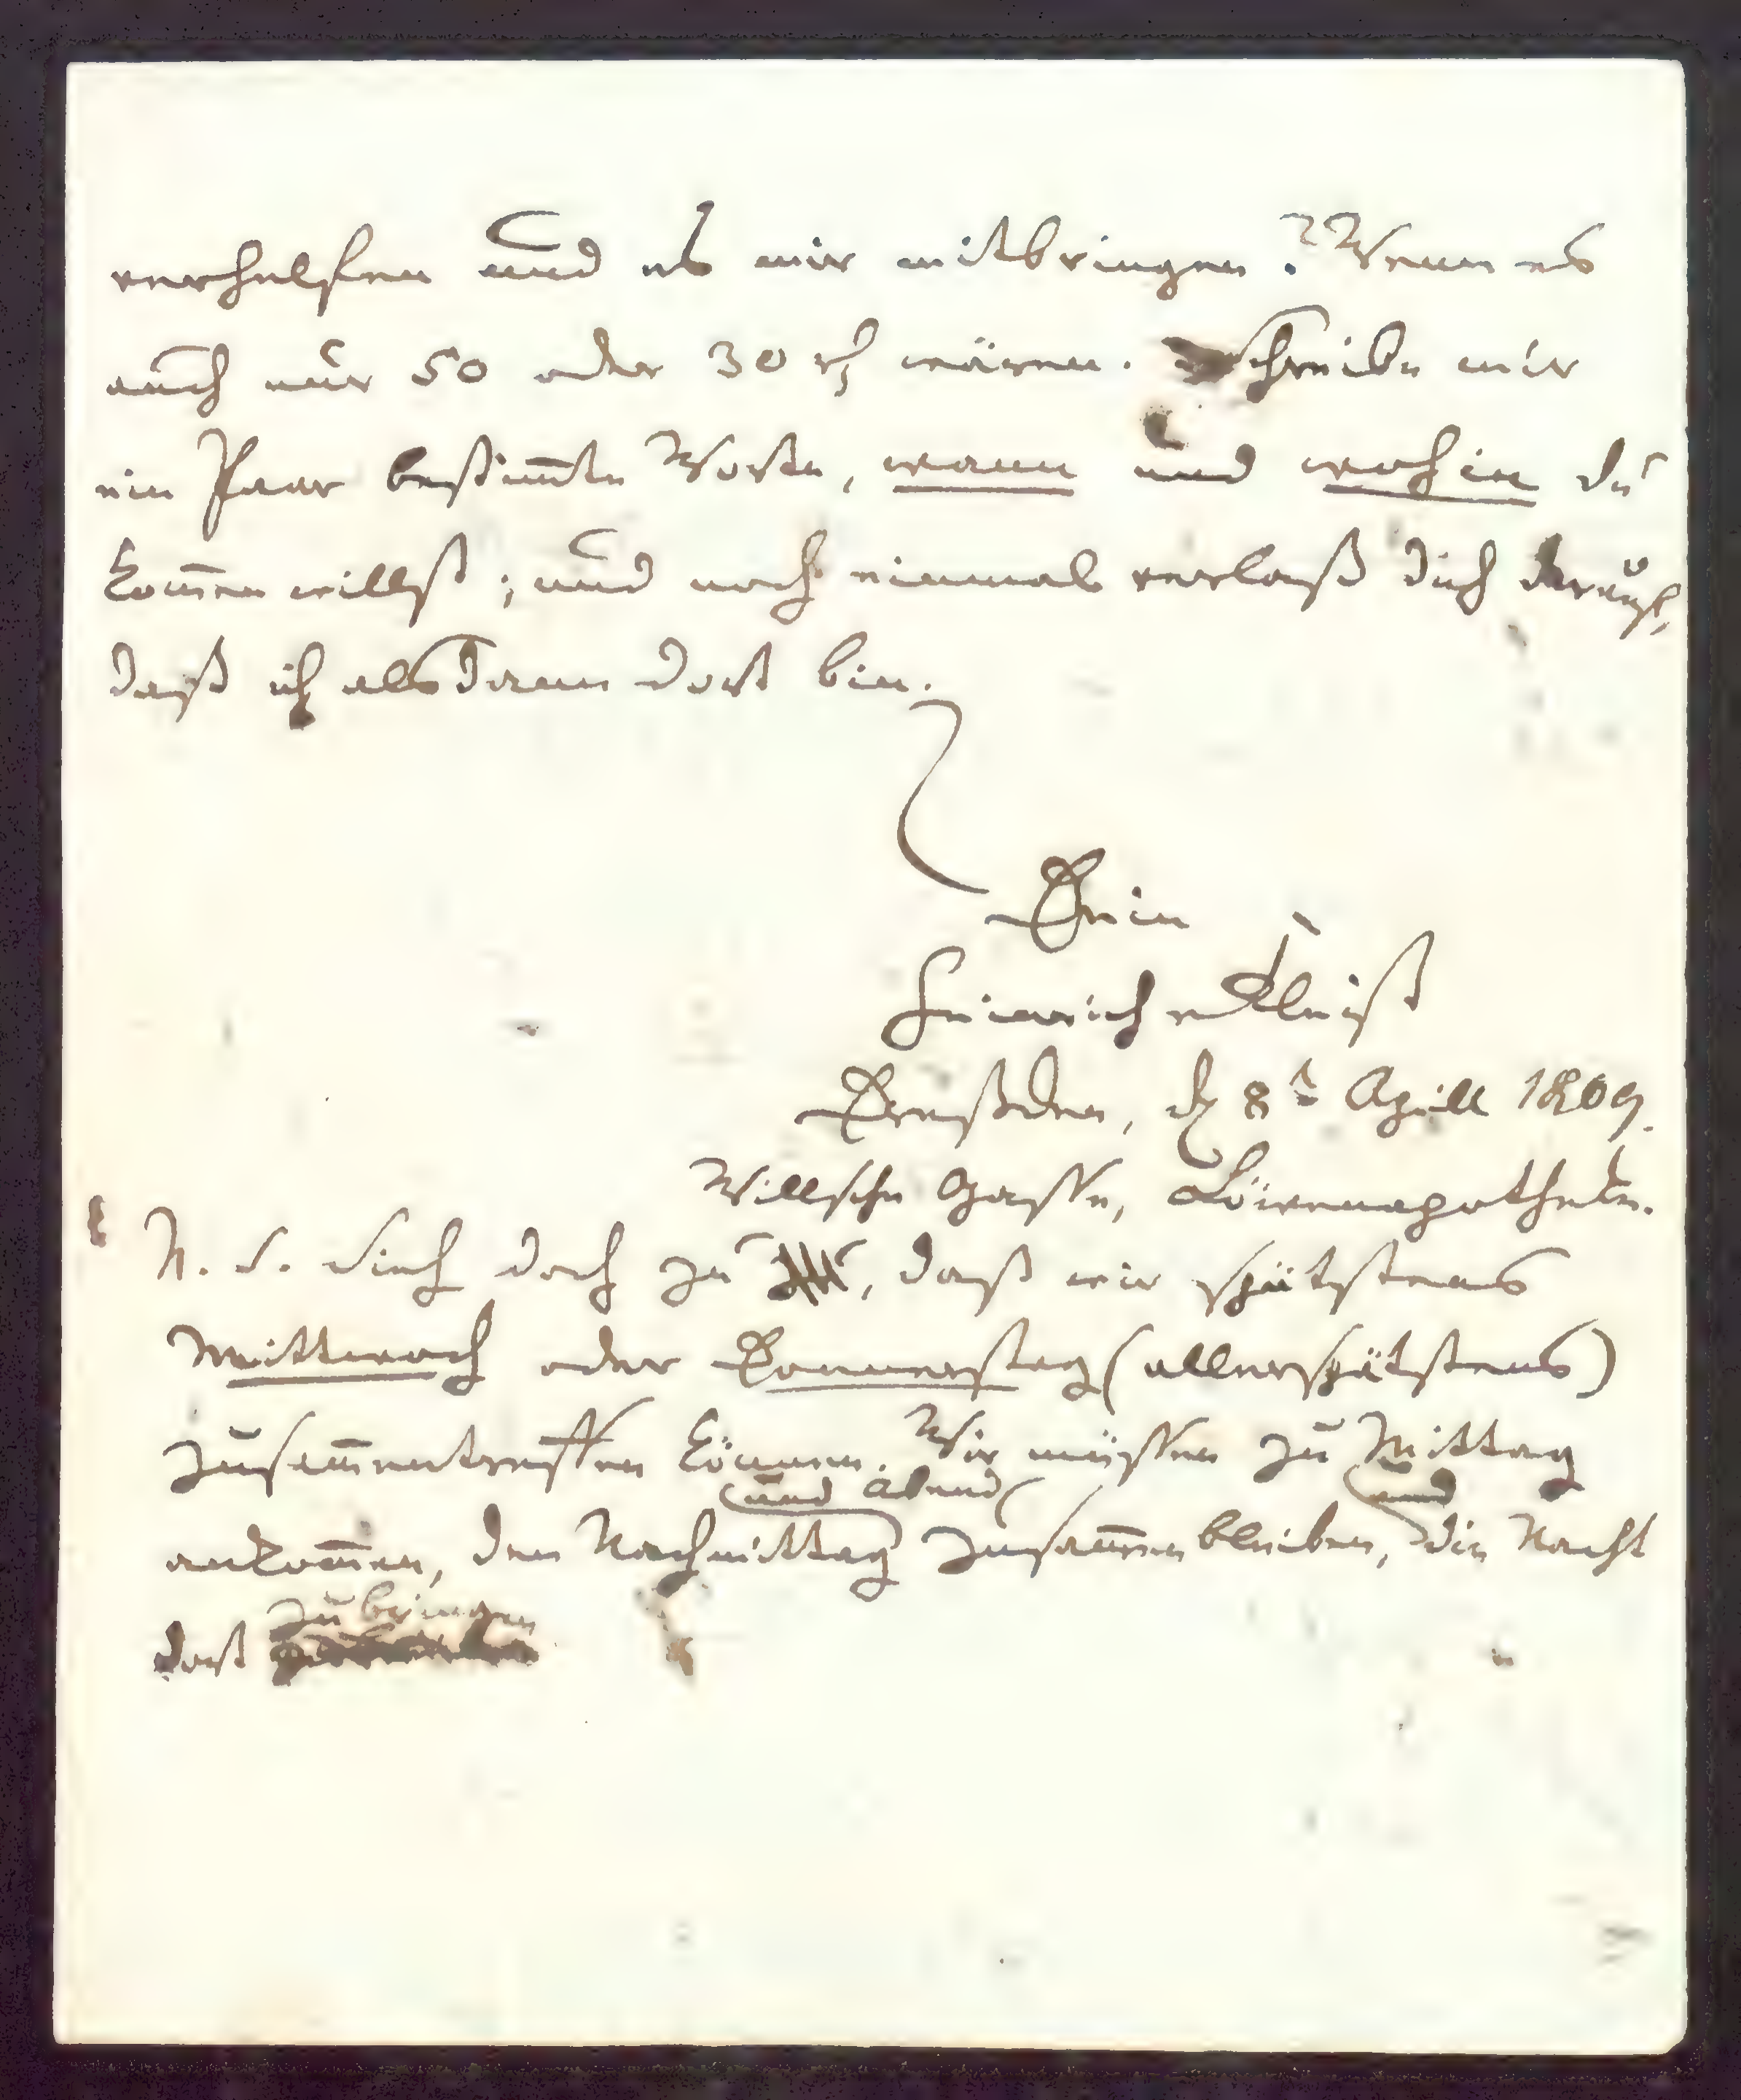 verhelfen und es mir mitbringen? Wenn es
auch nur 50 oder 30 rh wären. Schreibe mir
ein Paar bestim̄te Worte, wann und wohin du
kom̄en willst; und noch einmal verlaß dich darauf,
daß ich alsdann dort bin.
Dein
Heinrich v Kleist
Dreßden, d 8t Aprill 1809.
Willsche Gasse, Löwenapotheke.
N. S. Sieh doch zu, daß wir spätstens
Mittwoch oder Donnerstag (allerspätstens)
zusam̄entreffen können. Wir müssen zu Mittag
und Abend und
ankom̄en, den Nachmittag zusam̄en bleiben, die Nacht
zubringen
dort